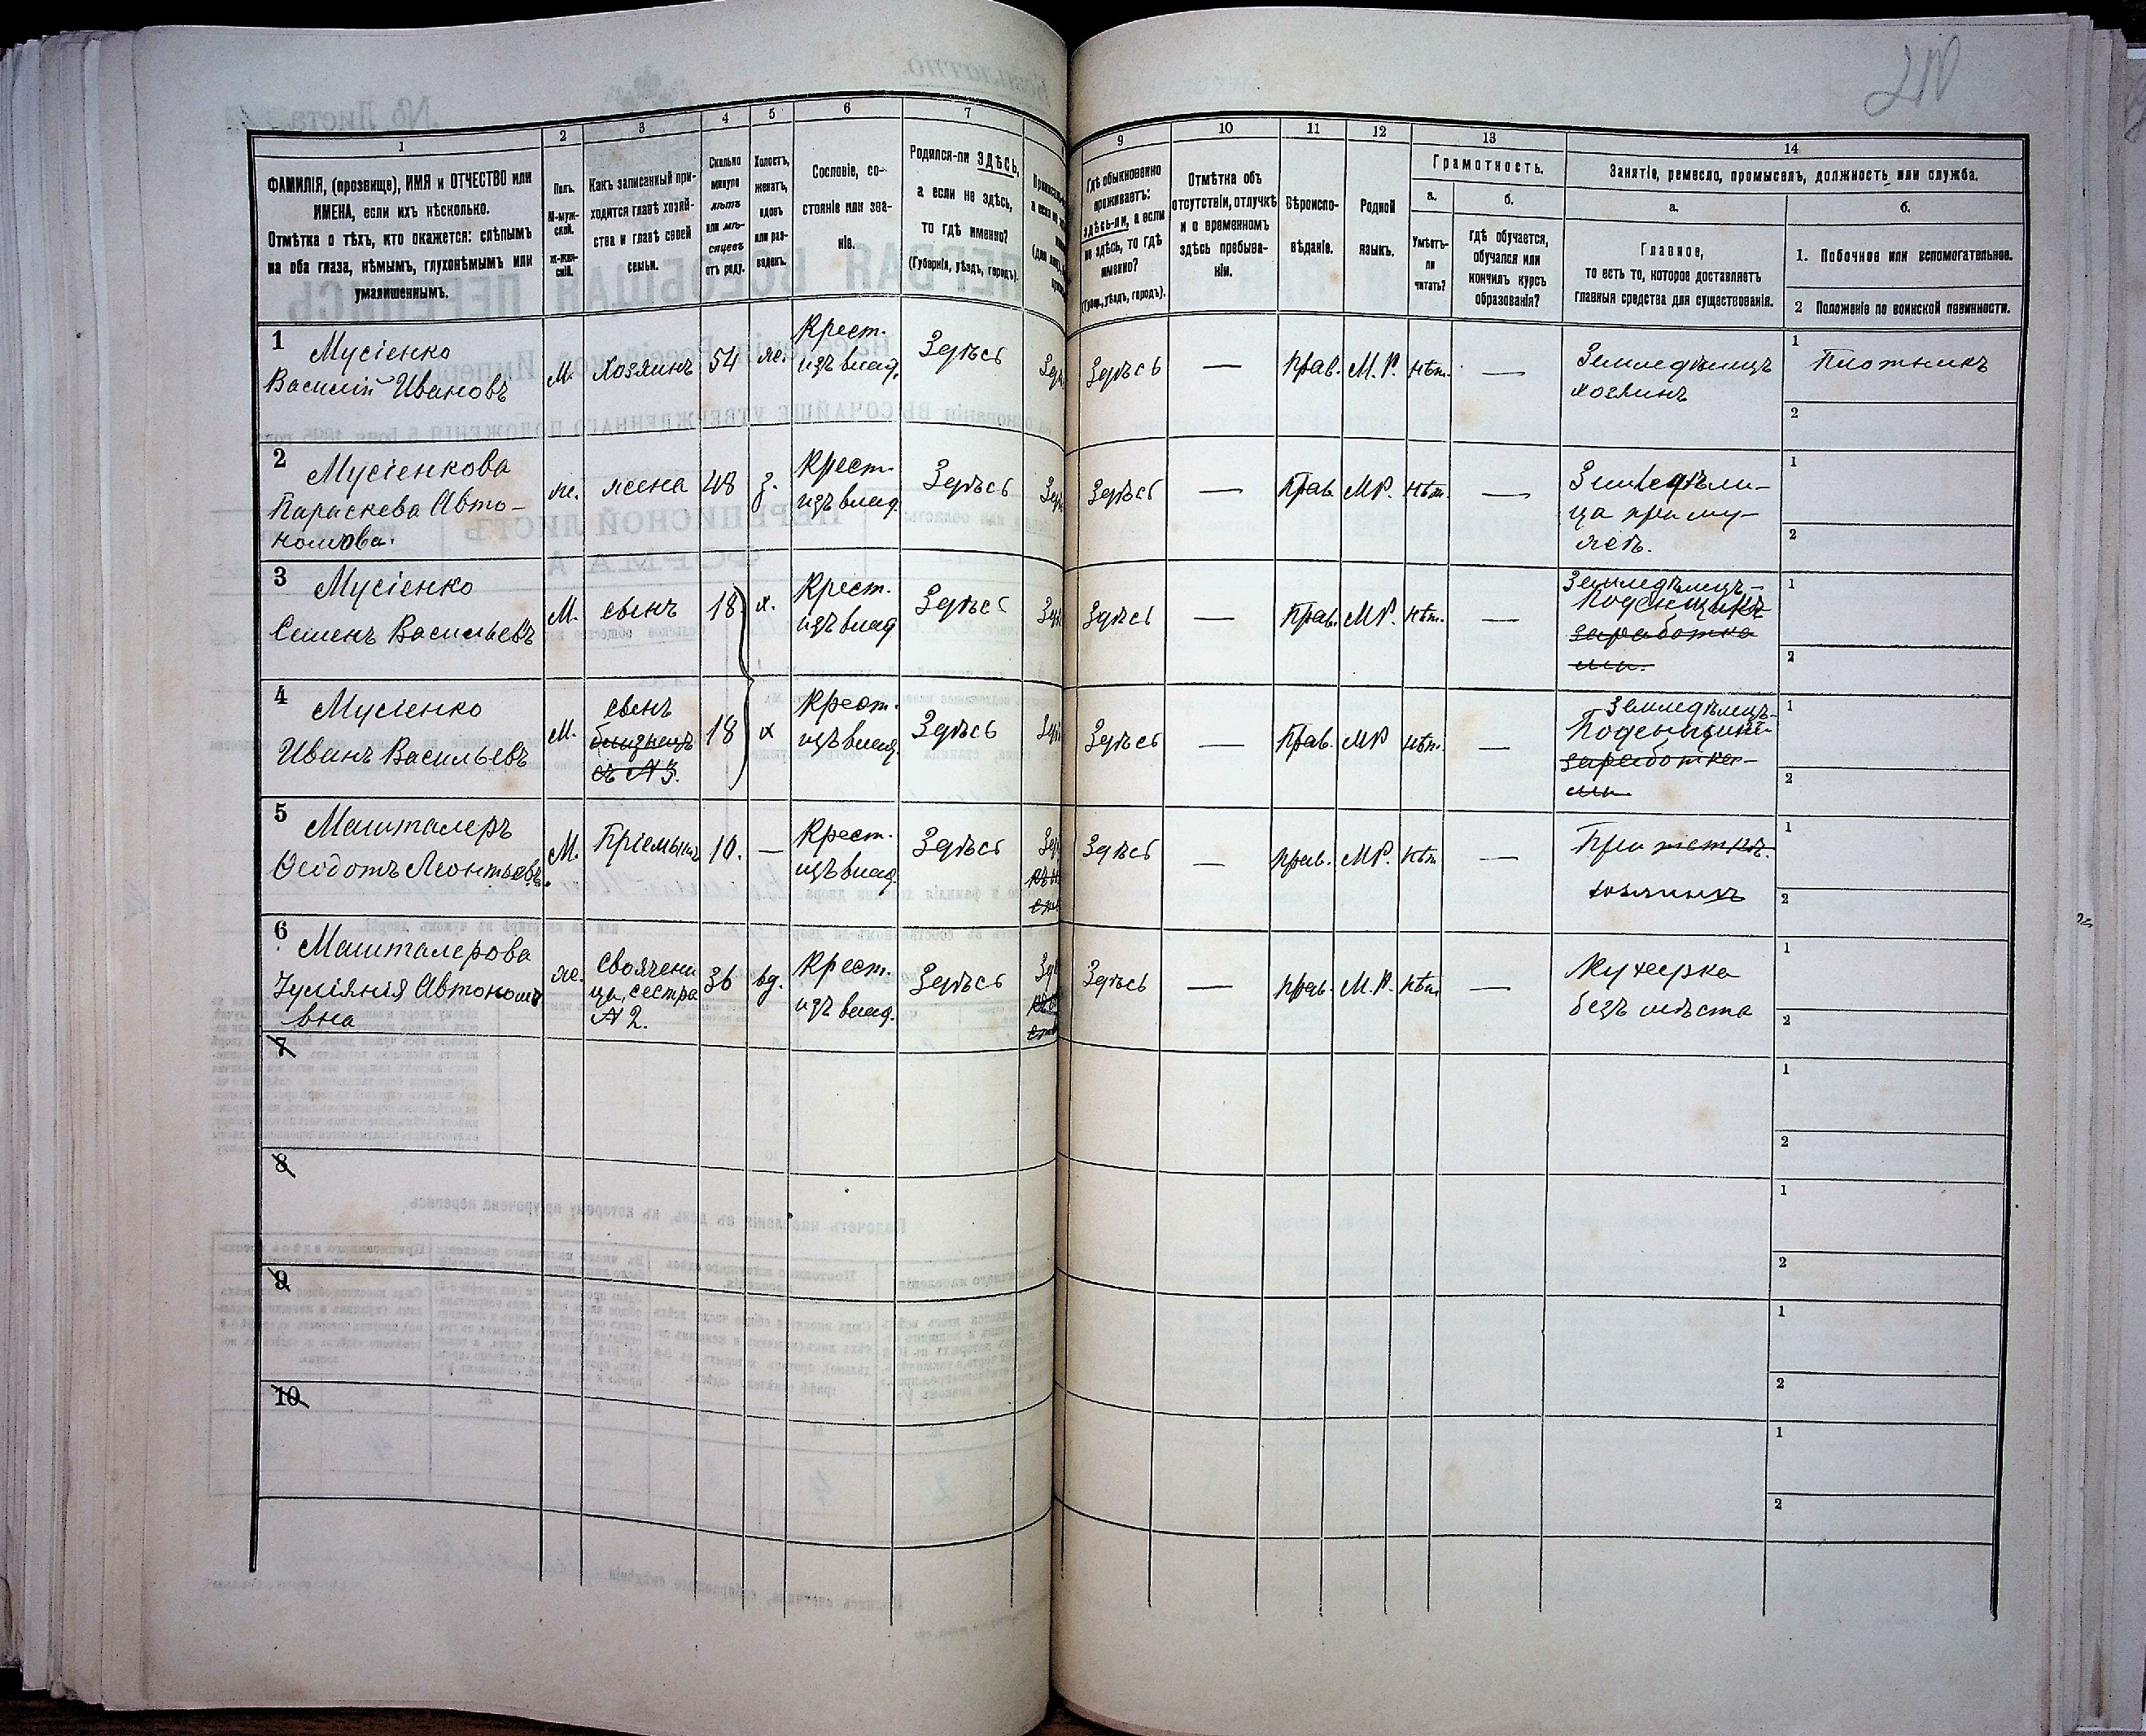 1
2
3
4
5
6
7
ФАМИЛІЯ, (прозвище), ИМЯ и ОТЧЕСТВО или
ИМЕНА, если ихъ нѣсколько.
Отмѣтка о тѣхъ, кто окажется: слѣпымъ
на оба глаза, нѣмымъ, глухонѣмымъ или
умалишеннымъ.
Полъ.
М-муж-
ской.
Ж-жен-
скій.
Какъ записанный при-
ходится главѣ хозяй-
ства и главѣ своей
семьи.
Сколько
минуло
лѣтъ
или мѣ-
сяцевъ
отъ роду.
Холостъ,
женатъ,
вдовъ
или раз-
веденъ.
Сословіе, со-
стояніе или зва-
ніе.
Родился-ли ЗДѢСЬ,
а если не здѣсь,
то гдѣ именно?
(Губернія, уѣздъ, городъ).
9
10
11
12
13
14
Гдѣ обыкновенно
проживаетъ:
здѣсь-ли, а если
не здѣсь, то гдѣ
именно?
(Губерн., уѣздъ, городъ).
Отмѣтка объ
отсутствіи, отлучкѣ
и о временномъ
здѣсь пребыва-
ніи.
Вѣроиспо-
вѣданіе.
Родной
языкъ.
Грамотность.
а.
б.
Умѣетъ-
ли
читать?
гдѣ обучается,
обучался или
кончилъ курсъ
образованія?
Занятіе, ремесло, промыселъ, должность или служба.
а.
б.
Главное,
то есть то, которое доставляетъ
главныя средства для существованія.
1. Побочное или вспомогательное.
2 Положеніе по воинской повинности.
1
Мусіенко
Василій Ивановъ
М.
Хозяинъ
54
ж.
Крест.
изъ влад.
Здѣсь
Здѣсь
—
Прав.
М.Р.
нѣт.
—
Земледѣлецъ
хозяинъ
1
Плотникъ
2
2
Мусіенкова
Параскева Авто-
номова.
ж.
жена
48
з.
Крест.
изъ влад.
Здѣсь
Здѣсь
—
Прав.
МР.
нѣт.
—
Земледѣли-
ца при му-
жѣ.
1
2
3
Мусіенко
Семенъ Васильевъ
М.
сынъ
18
х.
Крест.
изъ влад
Здѣсь
Здѣсь
—
Прав.
МР.
нѣт.
—
Земледѣлецъ-
Поденщикъ
заработка
ми.
1
2
4
Мусіенко
Иванъ Васильевъ
М.
сынъ
близнецъ
съ № 3.
18
х
Крест.
изъ влад.
Здѣсь
Здѣсь
—
Прав.
МР
нѣт.
—
Земледѣлецъ-
заработка-
ми.
1
2
5
Машталеръ
Ѳеодотъ Леонтьевъ.
М.
Пріемышъ
10.
—
Крест.
изъ влад.
Здѣсь
Здѣсь
—
прав.
МР.
нѣт
—
При теткѣ.
хозяинѣ
1
2
6
Машталерова
Іуліянія Автоном
вна
ж.
своячени
ца, сестра
№ 2.
36
вд.
Крест.
изъ влад.
Здѣсь
Здѣсь
—
прав.
М.Р.
нѣт.
—
Кухарка
безъ мѣста
1
2
7
1
2
8
1
2
9
1
2
10
1
2